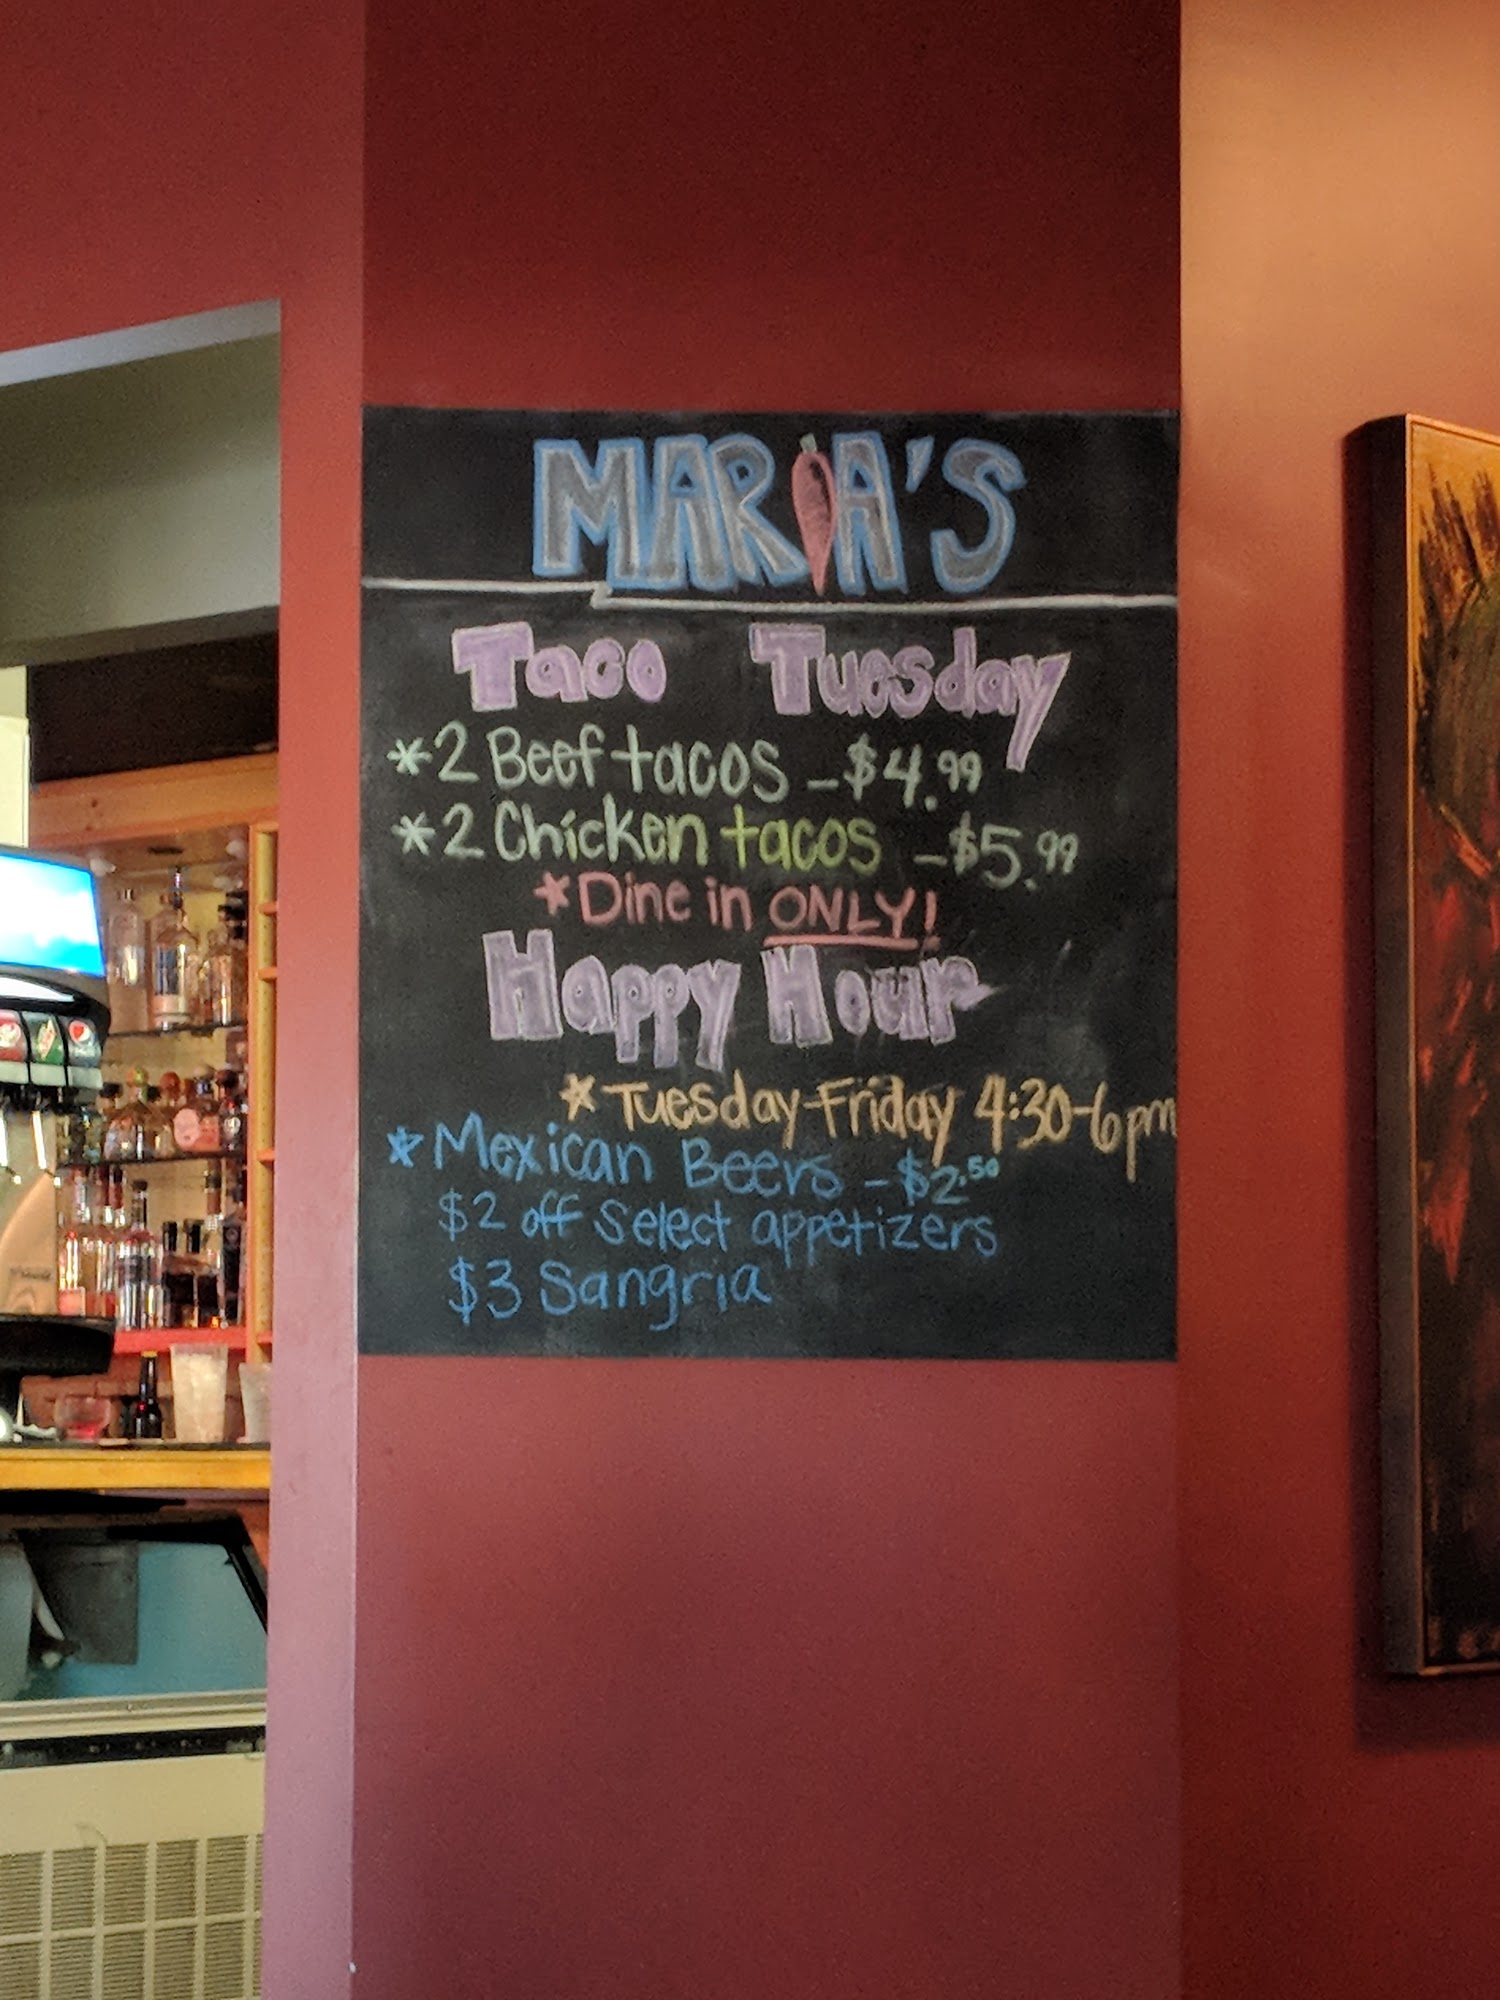 MARIA'S
Taco Tuesday
*2 Beef tacos - $4.99
*2 Chicken tacos - $5.99
*Dine in ONLY!
Happy Hour
*Tuesday-Friday 4:30-6pm
*Mexican Beers - $2.50
$2 off Select appetizers
$3 Sangria